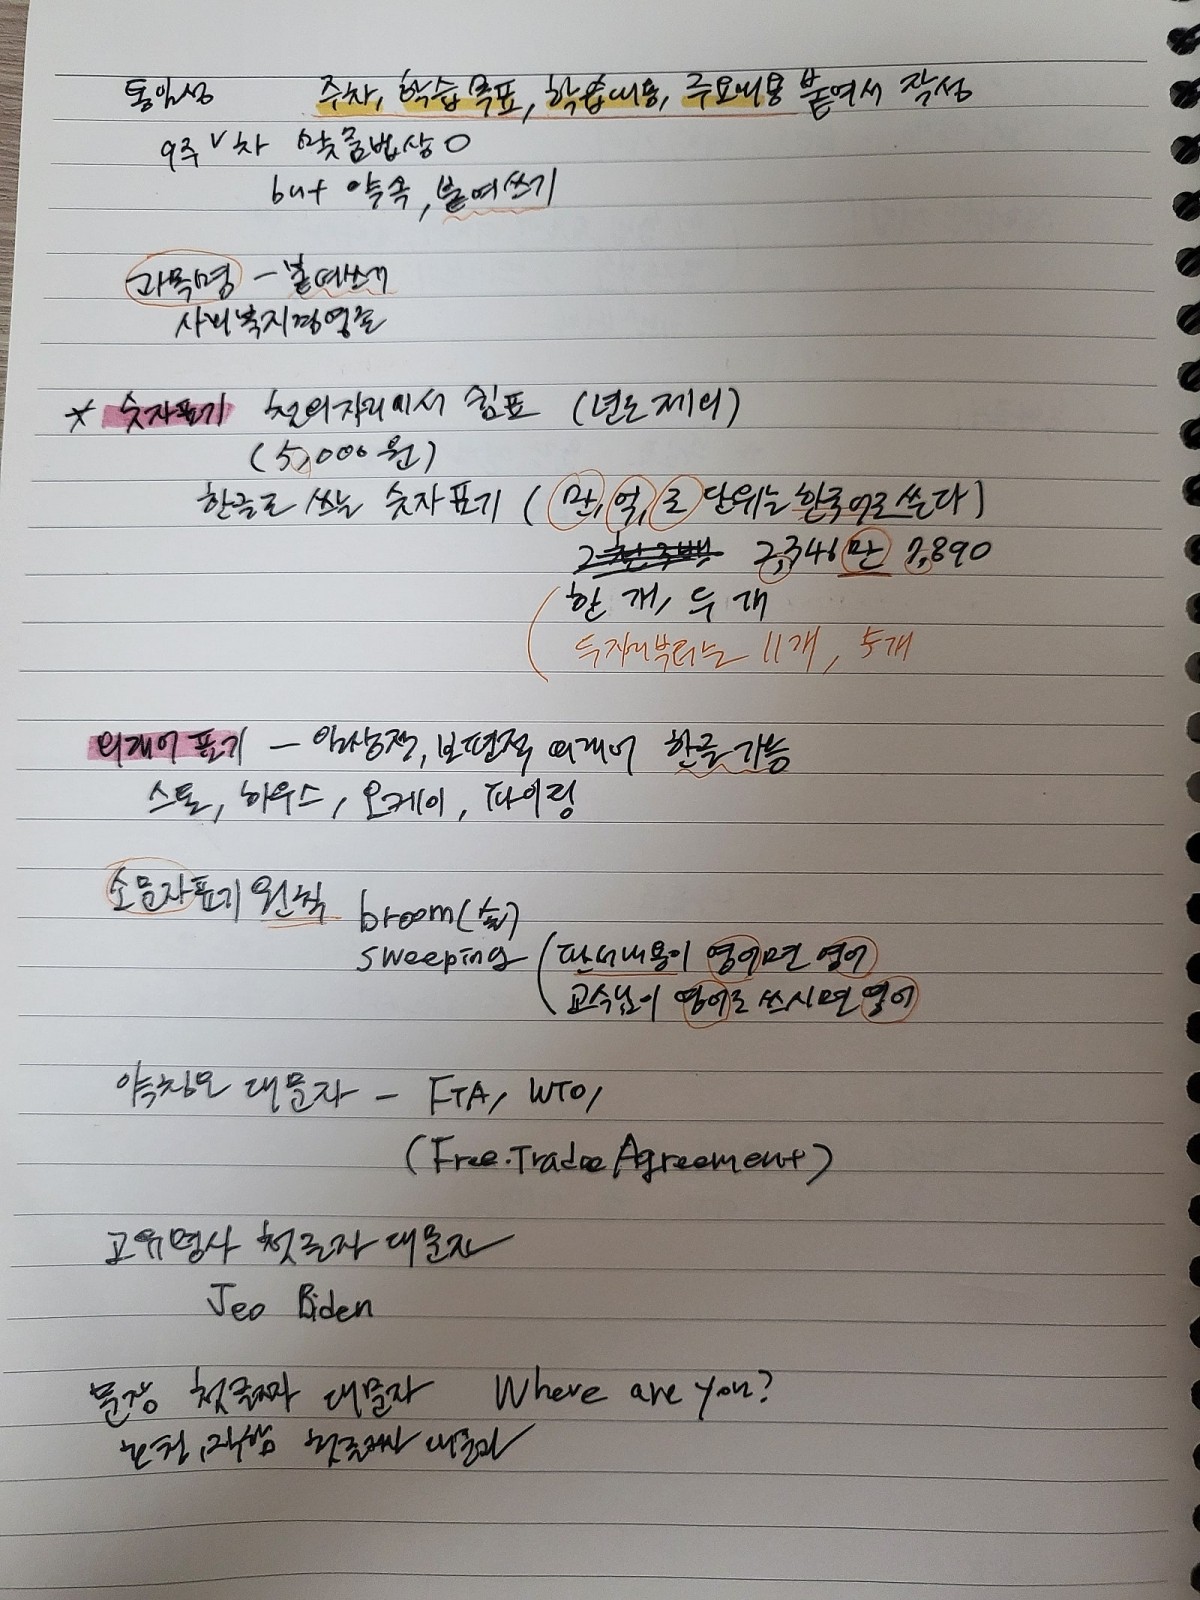 통일성 주차, 학습목표, 학습내용, 주요내용 붙여서 작성
9주∨차 맞춤법상 O
but 약속, 붙여쓰기
과목명 - 붙여쓰기
사회복지경영론
* 숫자표기 천의자리에서 쉼표 (년도 제외)
(5,000원)
한글로 쓰는 숫자표기 (만, 억, 조 단위는 한국어로 쓴다)
2,346만 7,890
한 개, 두 개
두자리부터는 11개, 15개
외래어 표기 - 일상적, 보편적 외래어 한글 가능
스톱, 하우스, 오케이, 파이팅
소문자표기 원칙 broom(솔)
sweeping (판서내용이 영어면 영어
교수님이 영어로 쓰시면 영어
약칭모 대문자 - FTA, WTO,
(Free.Tradoe Agreement)
고유명사 첫글자 대문자
Jeo Biden
문장 첫글짜 대문자 Where are you?
첫글짜 대문자